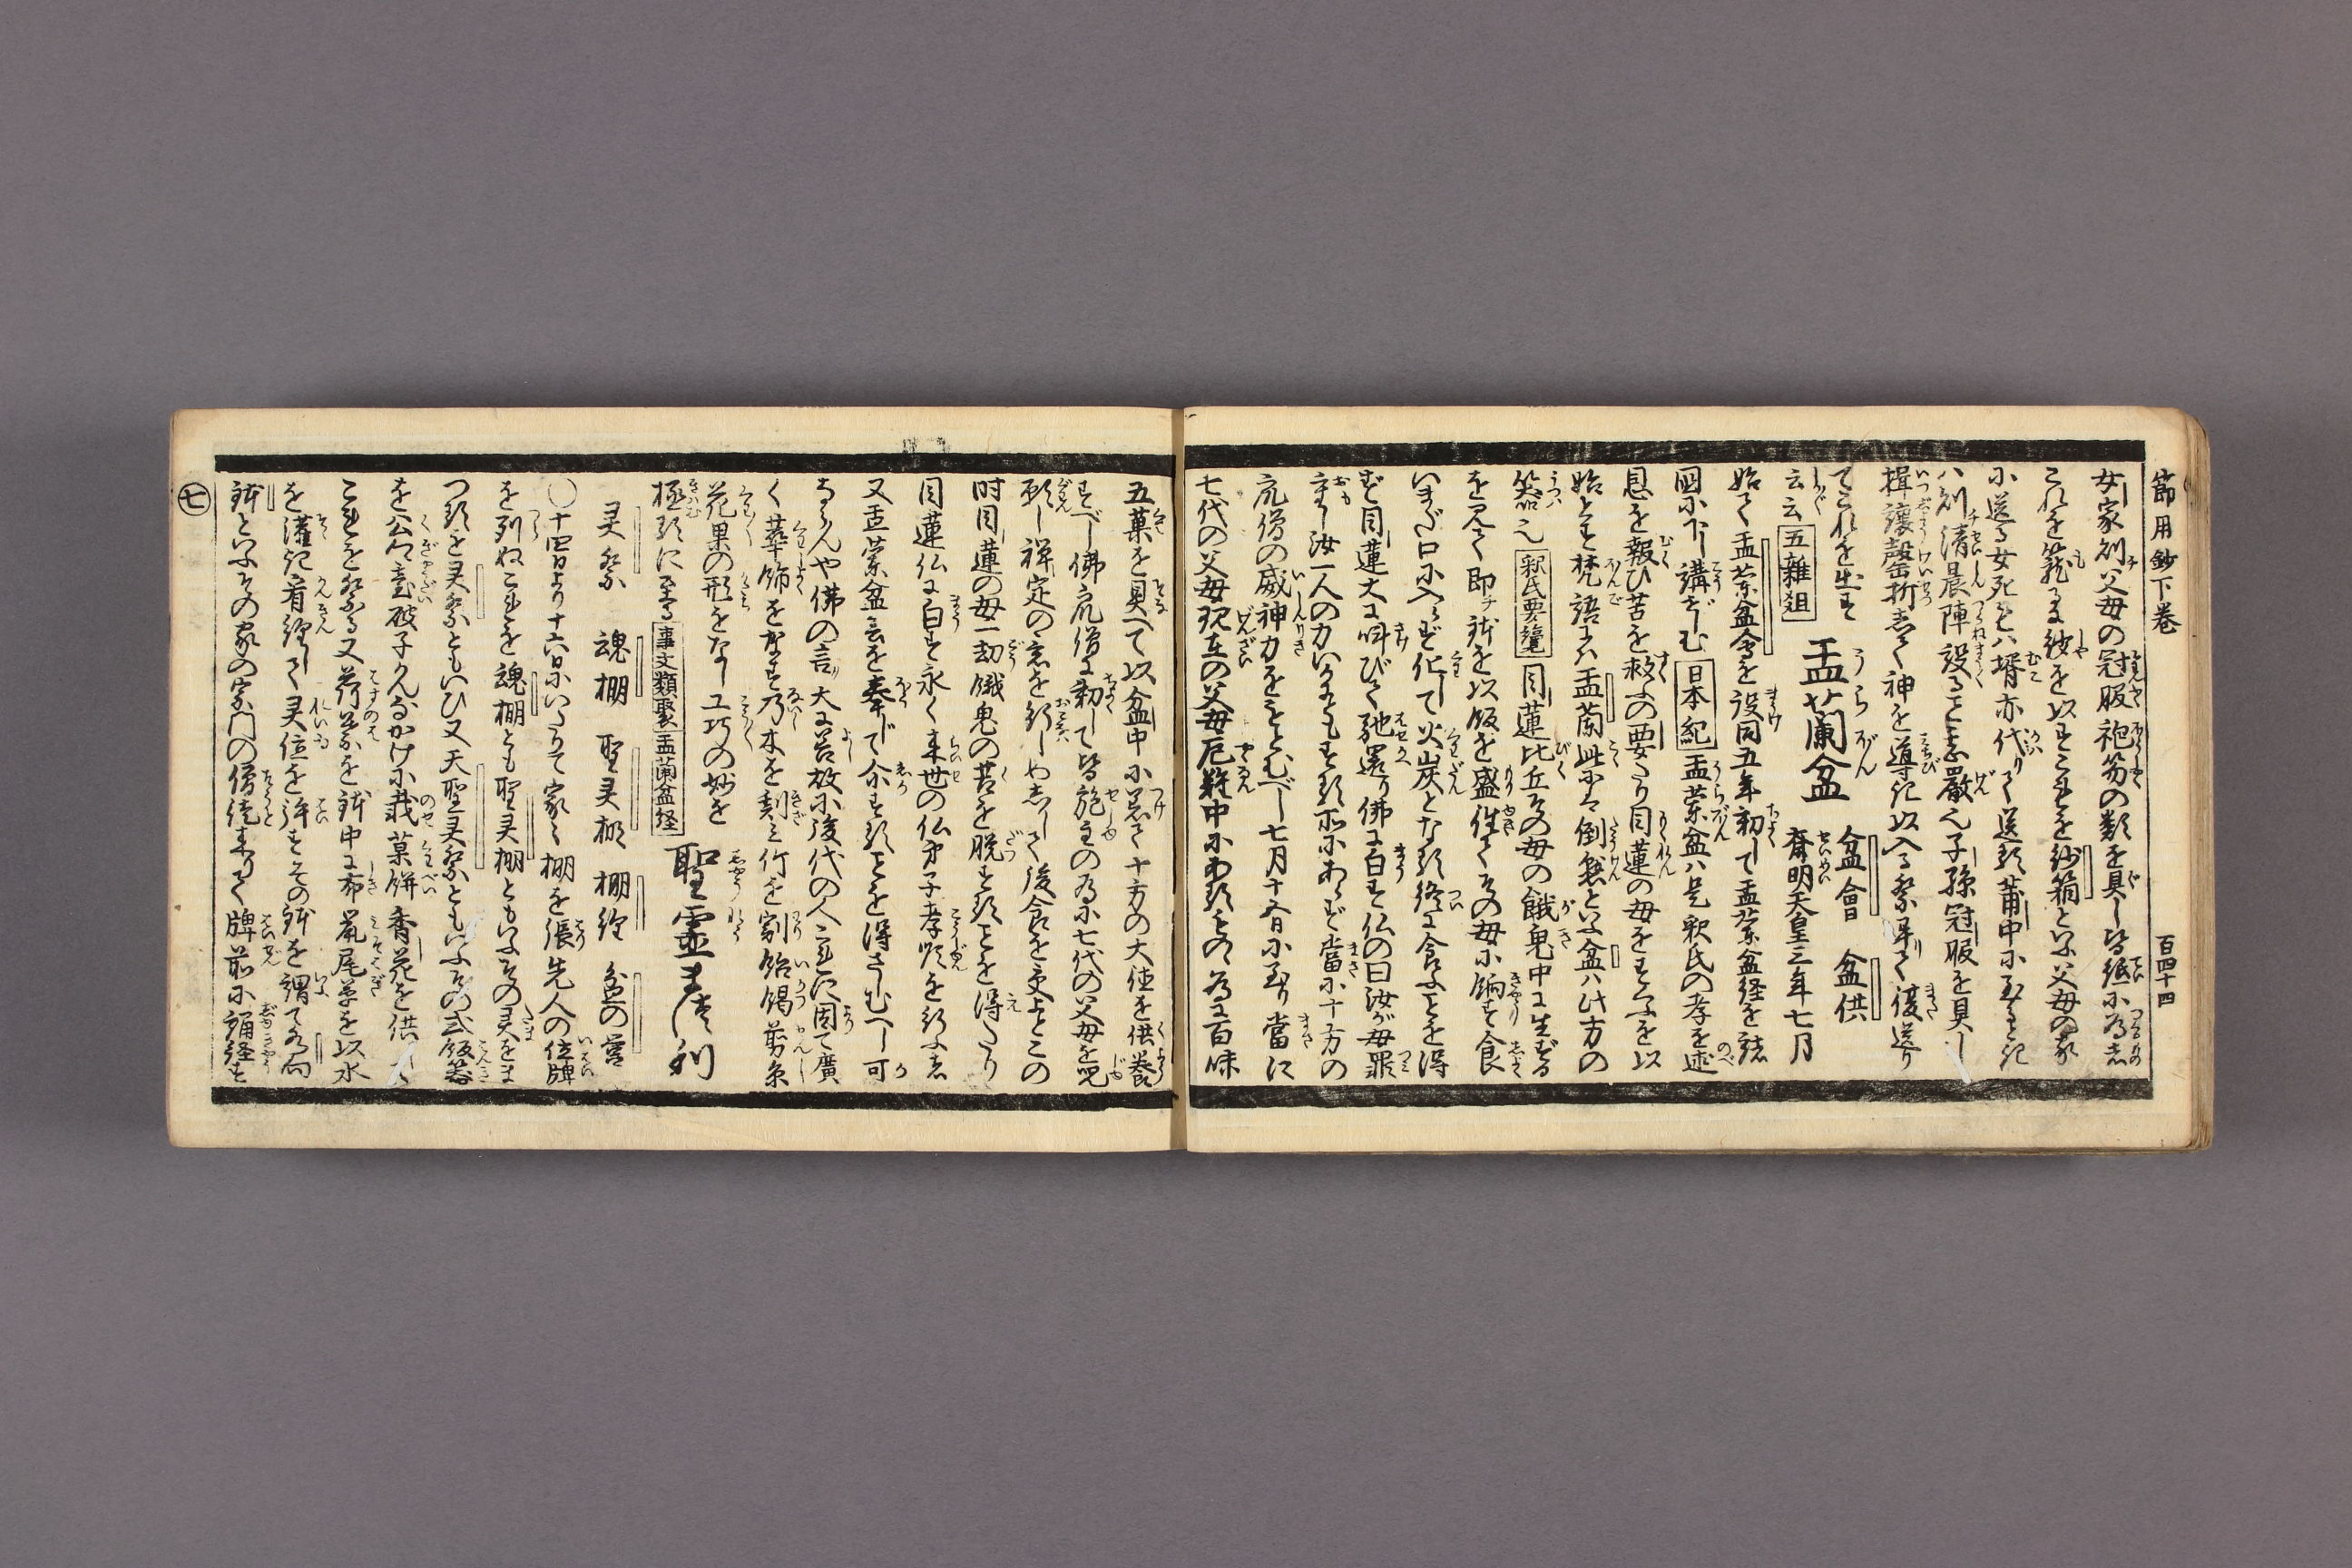 節用鈔下巻　百四十四
女家則父母の冠服袍笏の数を具し皆紙にて為
これを籠るに紗を以すこれを紗箱といふ父母の家
に送る女死すれハ婿亦代りて送る莆中に至るとき
ハ則清晨陣設ること甚厳へ子孫冠服を具へし
揖讓磬折して神を導き以入る祭畢りて復送り
てこれを出す
云云 五雑爼
盂蘭盆
盆會　盆供
斉明天皇三年七月
始て盂蘭盆會を設同五年勅して盂蘭盆経を諸
國に下し講ぜしむ 日本紀 盂蘭盆ハ是釈氏の孝を述
恩を報ひ苦を救ふの要たり目蓮の母をすくふを以
始とす梵語にハ盂蘭此にハ倒懸といふ盆ハ此方の
噐也 釈氏要覧 目蓮比丘その母の餓鬼中に生ずる
を見て即鉢を以飯を盛往てその母に餉す食
いまだ口に入らず化して火炭となる終に食ふことを得
ず目蓮大に叫びて馳還り佛に白す仏の曰汝が母罪
重し汝一人の力いかんともする所にあらず當に十方の
衆僧の威神力をもとむべし七月十五日に至り當に
七代の父母現在の父母厄難中にあるものゝ為に百味
五菓を具へて以盆中に着て十方の大徳を供養
すべし佛衆僧に勅して皆施主の為に七代の父母を咒
願し禅定の意を行しめ然して後食を受よとこの
時目蓮の母一劫餓鬼の苦を脱することを得たり
目蓮仏に白す永く来世の仏弟子孝順を行ふ者
又盂蘭盆会を奉じて介することを得さしむへし可
ならんや佛の言大に善故に後代の人これに因て廣
く華飾をなす乃木を刻ミ竹を割飴餳剪糸
花菓の形をなし工巧の妙を
極るに至る 事文類聚 盂蘭盆経
聖霊まつり
灵祭　魂棚　聖灵棚　棚經　盆の営
〇十四日より十六日にいたりて家々棚を張先人の位牌
を列ねこれを魂棚とも聖灵棚ともいふその灵をま
つるを灵祭ともいひ又天聖灵祭ともいふその式飯器
を公卿臺破子かんなかけに載菓餅香花を供して
これを祭る又荷葉を鉢中に布鼠尾草を以水
を灌き看經して灵位を拝すその鉢を謂て为向
鉢といふその家の宗門の僧徒来りて牌前に誦経す
七